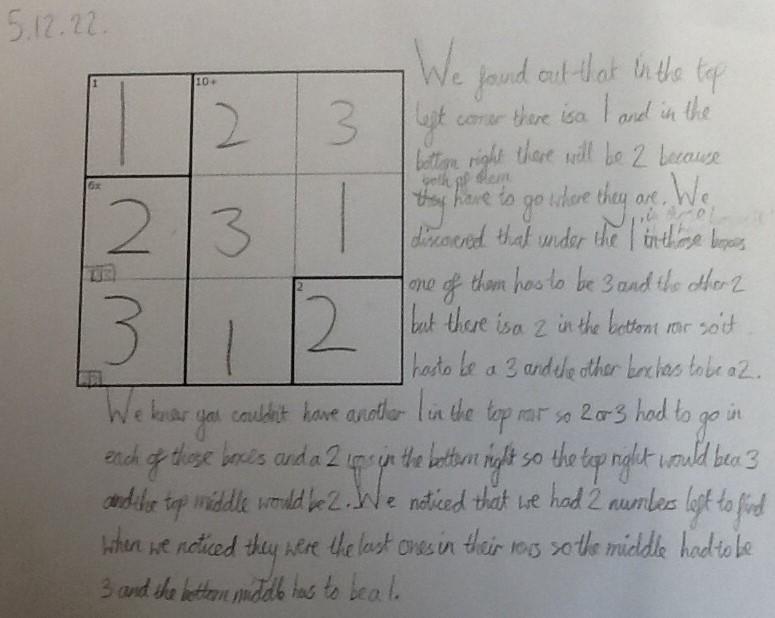 5.12.22.
1 1 10+ 2 3
6x 2 3 1
3 1 2 2
We found out that in the top
left corner there is a 1 and in the
bottom right there will be 2 because
both of them
they have to go where they are. We
discovered that under the 1 in those boxes
one of them has to be 3 and the other 2
but there is a 2 in the bottom row so it
has to be a 3 and the other box has to be a 2.
We knew you couldn't have another 1 in the top row so 2 or 3 had to go in
each of those boxes and a 2 in the bottom right so the top right would be a 3
and the top middle would be 2. We noticed that we had 2 numbers left to find
when we noticed they were the last ones in their rows so the middle had to be
3 and the bottom middle has to be a 1.